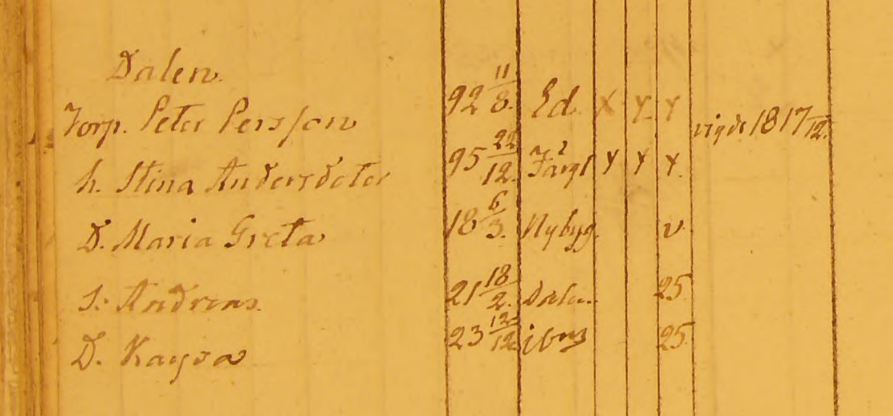 Dalen.
Torp. Peter Persson 92 11/8. Ed. X Y. Y vigde 1817/12.
h. Stina Andersdoter 95 22/12. Färgl Y Y Y.
D. Maria Greta 18 6/3. Nybyg. v.
S. Andreas. 21 18/2. Dalen. 25
D. Kaysa 23 12/12 ibm 25